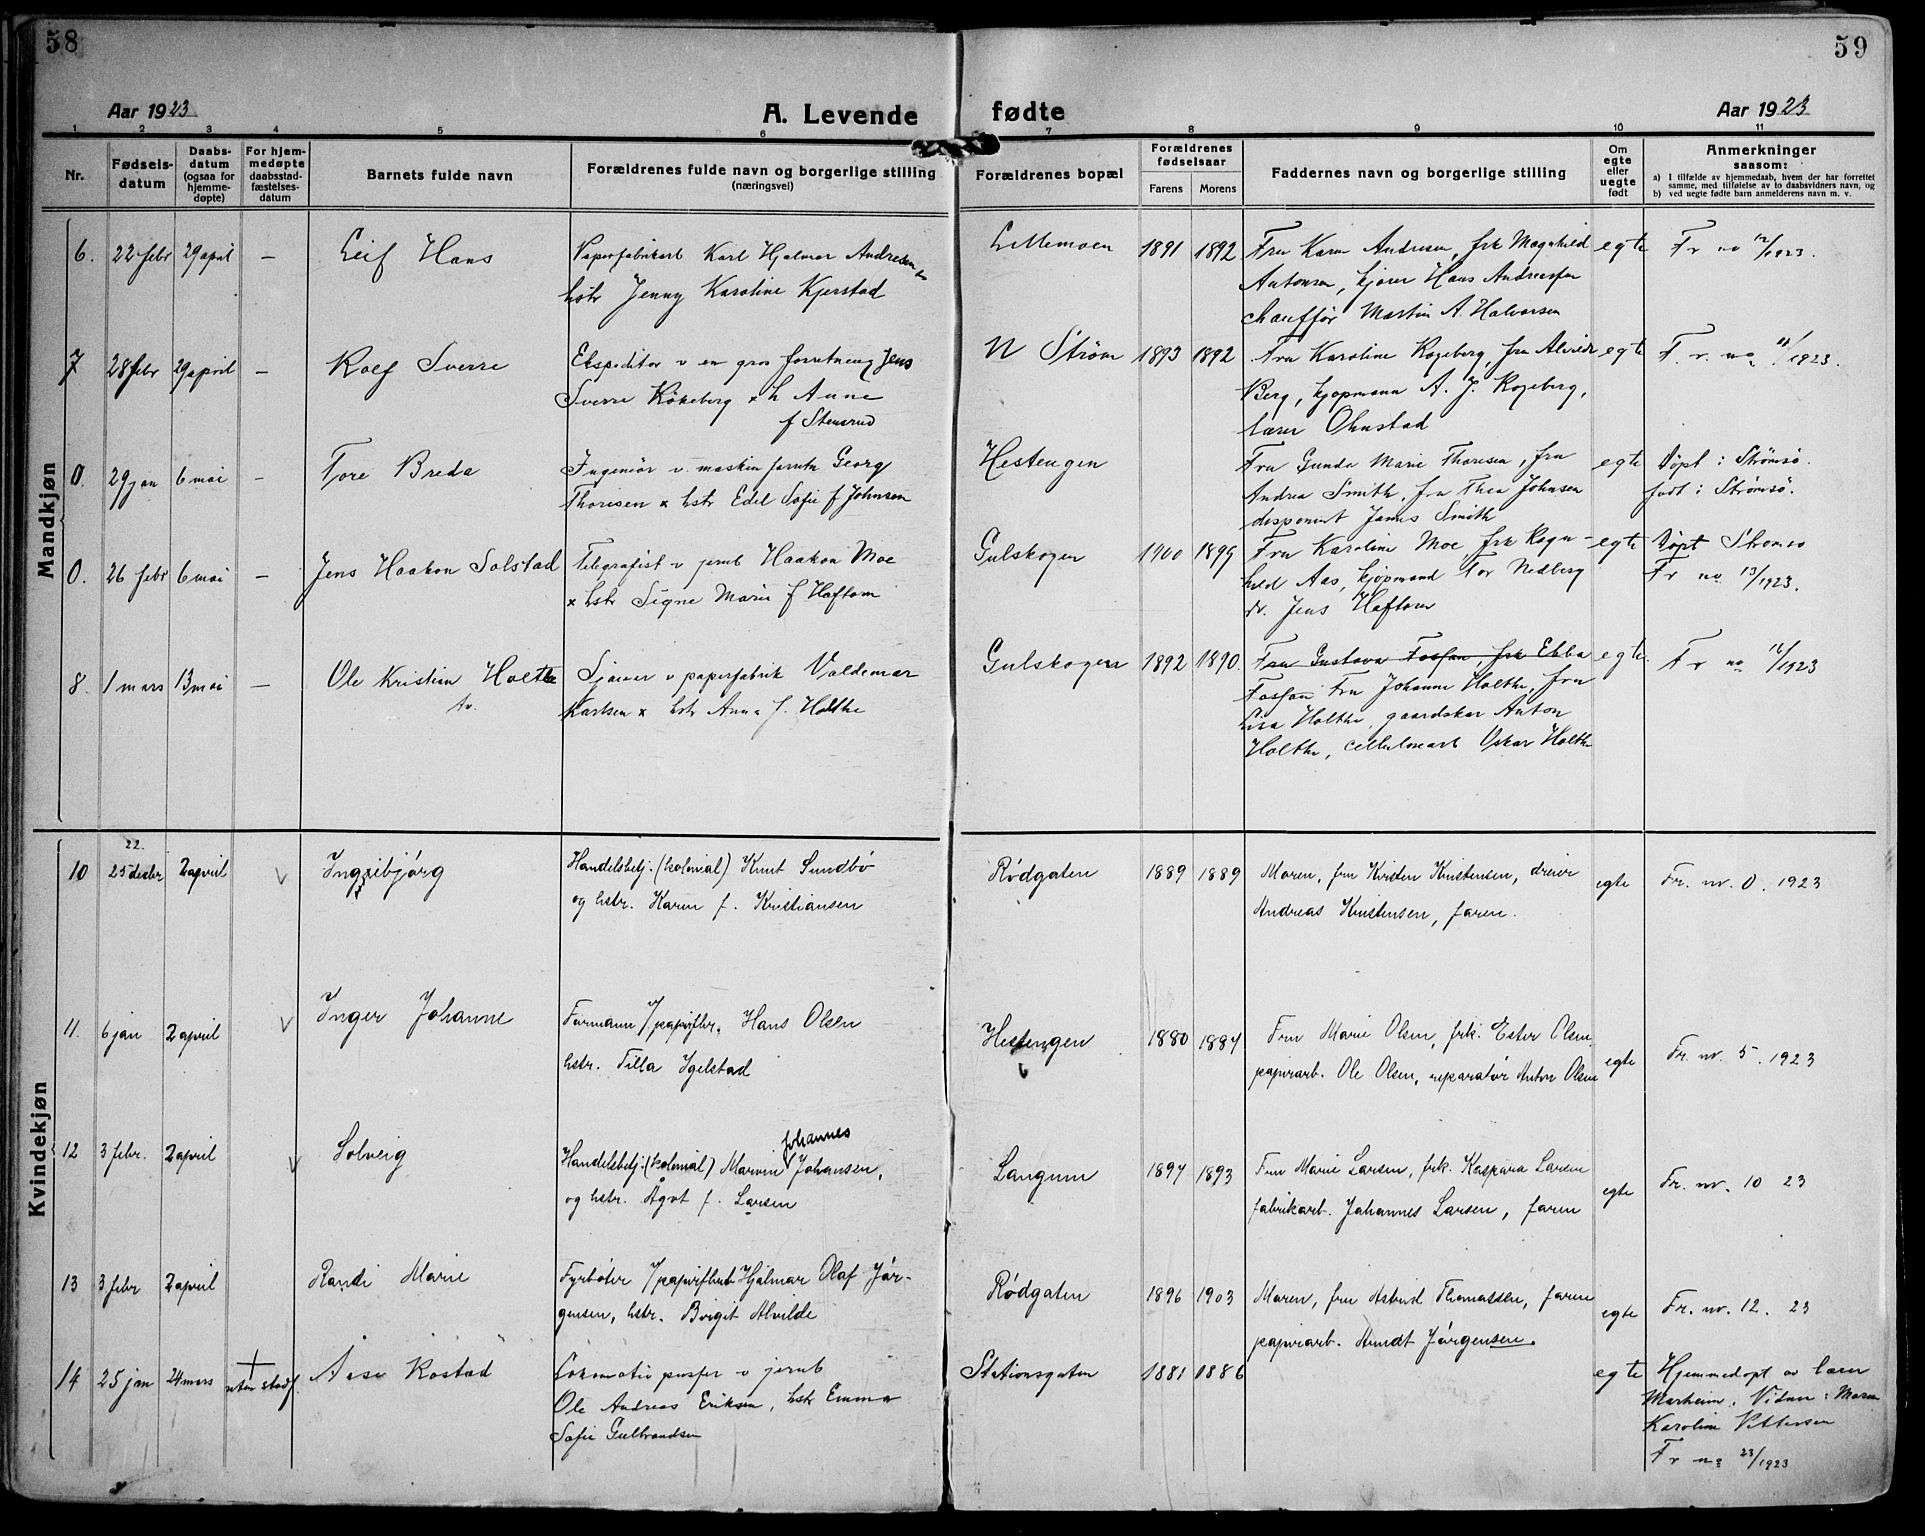 58
59
Aar 1923
A. Levende
fødte
Aar 1923
1 2 3 4 5 6 7 8 9 10 11
Nr.
Fødsels-
datum
Daabs-
datum
(ogsaa for
hjemme-
døpte)
For hjem-
medøpte
daabsstad-
fæstelses-
datum
Barnets fulde navn
Forældrenes fulde navn og borgerlige stilling
(næringsvei)
Forældrenes bopæl
Forældrenes
fødselsaar
Farens Morens
Faddernes navn og borgerlige stilling
Om
egte
eller
uegte
født
Anmerkninger
saasom:
a) I tilfælde av hjemmedaab, hvem der har forrettet
samme, med tilføielse av to daabsvidners navn, og
b) ved uegte fødte barn anmelderens navn m. v.
Mandkjøn
6. 22 febr 29 april – Leif Hans
Papirfabrikarb Karl Hjalmar Andresen
hstr Jenny Karoline Kjerstad
Lillemoen 1891 1892
Fru Karen Andresen, frk Magnhild
Antonsen, kjører Hans Andreassen
chauffør Martin A. Halvorsen
egte
Fr no 12/1923.
7 28 febr 29 april – Rolf Sverre
Ekspeditør v en gros forretning Jens
Sverre Kökeberg x h Anne
f Stensrud
N Strøm 1893 1892
Fru Karoline Rogeberg, fru
Berg, kjøpmann A. J. Rogeberg,
lærer Ohnstad
egte
F. r. no 11/1923.
0. 29 jan 6 mai – Tore Breda
Ingeniør v. maskin forretn Georg
Thoresen x hstr Edel Sofie f Johnsen
Hestengen
Fru Gunda Marie Thoresen, fru
Andrea Smith, fru Thea Johnsen
disponent James Smith
egte
Døpt i Strømsø.
født i Strømsø.
0. 26 febr 6 mai – Jens Haakon Solstad
Telegrafist v jernb Haakon Moe
x hstr Signe Marie f Haftorn
Gulskogen 1900 1899
Fru Karoline Moe, frk Ragn-
hild Aas, kjøpmand Tor Nedberg
dr. Jens Haftorn
egte
Døpt Strømsø
Fr no. 13/1923.
8. 1 mars 13 mai – Ole Kristian Holthe
tv.
Sjauer v papirfabrik Valdemar
Karlsen x hstr Anna f. Holthe
Gulskogen 1892 1890.
Fru Gustava Fossan, frk Ebba
Fossan Fru Johanne Holthe, fru
Lisa Holthe, gaardskar Anton
Holthe, cellulosearb Oskar Holthe
egte.
Fr no 16/1923
Kvindekjøn
22.
10 25 decbr 2 april v Ingebjörg
Handelsbetj. (kolonial) Knut Sundbö
og hstr. Karen f. Kristiansen
Rödgaten 1889 1889
Moren, fru Kirsten Kristensen, dreier
Andreas Kristensen, faren.
egte
Fr. nr. 0. 1923
11. 6 jan 2 april v Inger Johanne
Formann v/ papirfbr. Hans Olsen
hstr. Tilla Igelstad
Hestengen 1880 1884
v
Fru Marie Olsen, frk. Ester Olsen,
papirarb. Ole Olsen, reparatör Anton Olsen
egte
Fr. nr. 5. 1923
12 3 febr. 2 april v Solveig
Johannes
Handelsbetj. (kolonial) Marvin Johansen,
og hstr. Ågot f. Larsen
Langum 1897 1893
Fru Marie Larsen, frk. Kaspara Larsen
fabrikarb. Johannes Larsen, faren
egte
Fr. nr. 10 23
13 3 febr 2 april Randi Marie
Fyrböter v/ papirfbrk Hjalmar Olaf Jör-
gensen, hstr. Birgit Alvilde
Rödgaten 1896 1903
Moren, fru Astrid Thomassen, faren
papirarb. Arndt Jörgensen.
egte
Fr. nr. 12. 23
14 25 jan 24 mars + uten stadf. Aase Rostad
Lokomotiv pusser v jernb
Ole Andreas Eriksen, hstr Emma
Sofie Gulbrandsen
Stationsgaten 1881 1886
egte
Hjemmedøpt av lærer
Marheim. Vidner: Moren
Karoline Pettersen
Fr no 23/1923